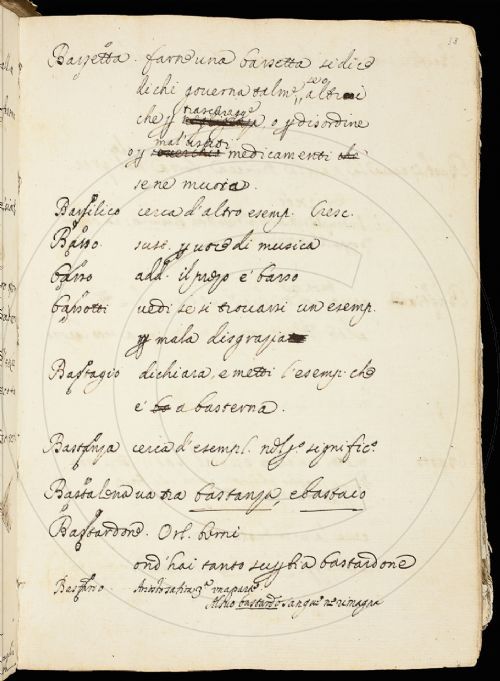 38
Bazzetta. farne una bazzetta si dice
di chi governa talm.e se o altrui
che p trascuragg.e o p disordine
o p mal'usati medicamenti
se ne muora.
Basilico cerca d'altro esemp. Cresc.
Basso. sust. p voce di musica
basso add. il prezzo è basso
bassotti vedi se si trovassi un esemp.
p mala disgrazia
Bastagio dichiara, e metti l'esemp. che
è a basterna.
Bastanza cerca d'esempl. nel s.o signific.o
Bastalena va tra bastanza, e bastaio
Bastardone. Orl. berni
ond'hai tanto bastardone
Bastardo.
Al suo bastardo sangue